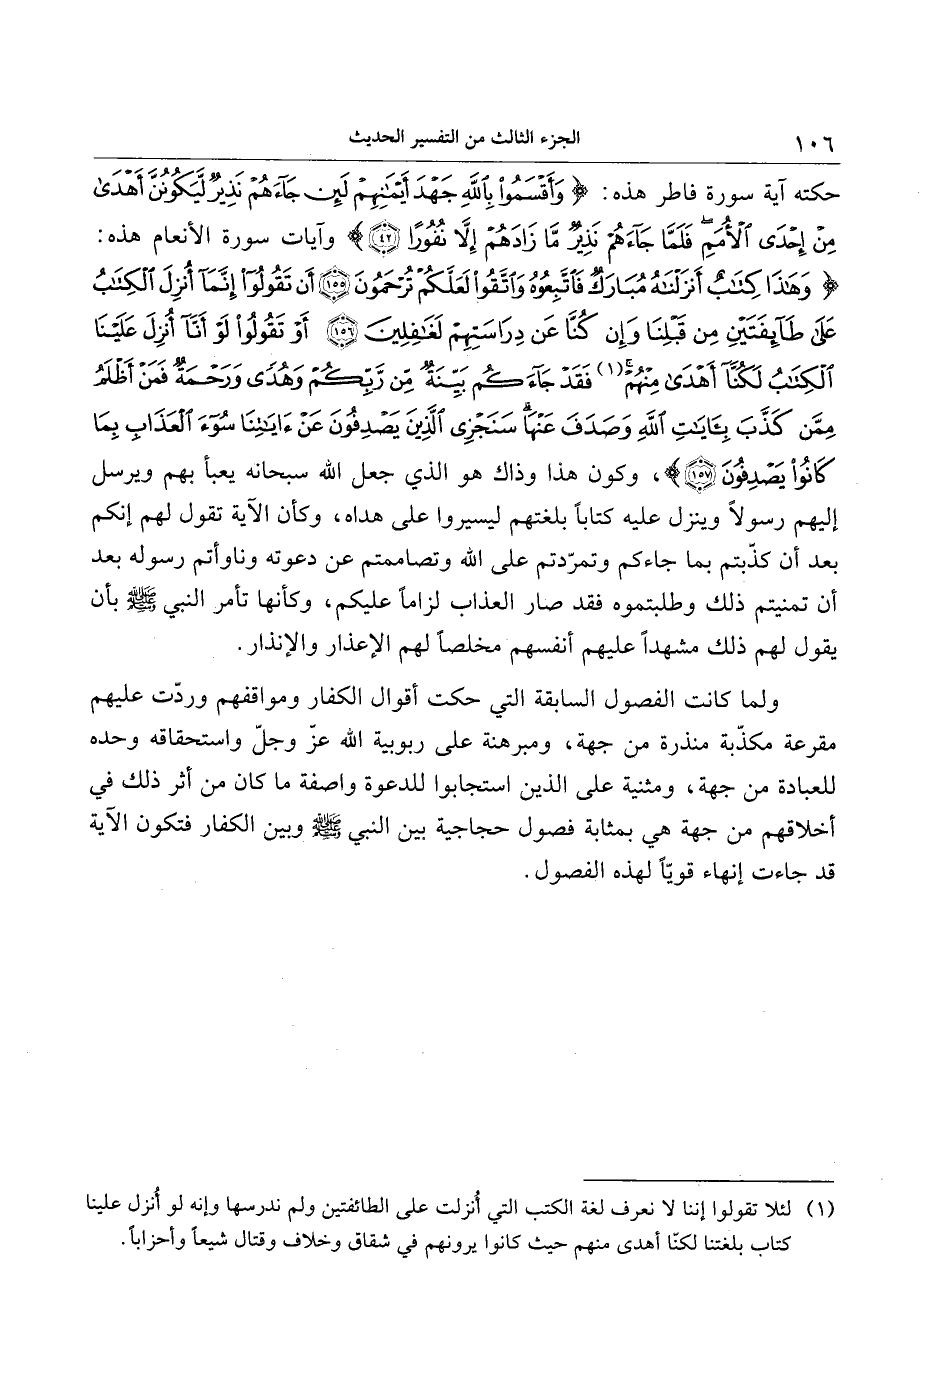 ١٠٦ الجزء الثالث من التفسير الحديث
حكته آية سورة فاطر هذه: ﴿ وَأَقْسَمُوا۟ بِٱللَّهِ جَهْدَ أَيْمَٰنِهِمْ لَئِن جَآءَهُمْ نَذِيرٌ لَّيَكُونُنَّ أَهْدَىٰ
مِنْ إِحْدَى ٱلْأُمَمِ ۖ فَلَمَّا جَآءَهُمْ نَذِيرٌ مَّا زَادَهُمْ إِلَّا نُفُورًا ٤٢ ﴾ وآيات سورة الأنعام هذه:
﴿ وَهَٰذَا كِتَٰبٌ أَنزَلْنَٰهُ مُبَارَكٌ فَٱتَّبِعُوهُ وَٱتَّقُوا۟ لَعَلَّكُمْ تُرْحَمُونَ ١٥٥ أَن تَقُولُوٓا۟ إِنَّمَآ أُنزِلَ ٱلْكِتَٰبُ
عَلَىٰ طَآئِفَتَيْنِ مِن قَبْلِنَا وَإِن كُنَّا عَن دِرَاسَتِهِمْ لَغَٰفِلِينَ ١٥٦ أَوْ تَقُولُوا۟ لَوْ أَنَّآ أُنزِلَ عَلَيْنَا
ٱلْكِتَٰبُ لَكُنَّآ أَهْدَىٰ مِنْهُمْ ۚ (١) فَقَدْ جَآءَكُم بَيِّنَةٌ مِّن رَّبِّكُمْ وَهُدًى وَرَحْمَةٌ ۚ فَمَنْ أَظْلَمُ
مِمَّن كَذَّبَ بِـَٔايَٰتِ ٱللَّهِ وَصَدَفَ عَنْهَا ۗ سَنَجْزِى ٱلَّذِينَ يَصْدِفُونَ عَنْ ءَايَٰتِنَا سُوٓءَ ٱلْعَذَابِ بِمَا
كَانُوا۟ يَصْدِفُونَ ١٥٧ ﴾، وكون هذا وذاك هو الذي جعل الله سبحانه يعبأ بهم ويرسل
إليهم رسولاً وينزل عليه كتاباً بلغتهم ليسيروا على هداه، وكأن الآية تقول لهم إنكم
بعد أن كذّبتم بما جاءكم وتمرّدتم على الله وتصاممتم عن دعوته وناوأتم رسوله بعد
أن تمنيتم ذلك وطلبتموه فقد صار العذاب لزاماً عليكم، وكأنها تأمر النبي ﷺ بأن
يقول لهم ذلك مشهداً عليهم أنفسهم مخلصاً لهم الإعذار والإنذار.
ولما كانت الفصول السابقة التي حكت أقوال الكفار ومواقفهم وردّت عليهم
مقرعة مكذّبة منذرة من جهة، ومبرهنة على ربوبية الله عزّ وجلّ واستحقاقه وحده
للعبادة من جهة، ومثنية على الذين استجابوا للدعوة واصفة ما كان من أثر ذلك في
أخلاقهم من جهة هي بمثابة فصول حجاجية بين النبي ﷺ وبين الكفار فتكون الآية
قد جاءت إنهاء قويّاً لهذه الفصول.
(١) لئلا تقولوا إننا لا نعرف لغة الكتب التي أُنزلت على الطائفتين ولم ندرسها وإنه لو أُنزل علينا
كتاب بلغتنا لكنّا أهدى منهم حيث كانوا يرونهم في شقاق وخلاف وقتال شيعاً وأحزاباً.